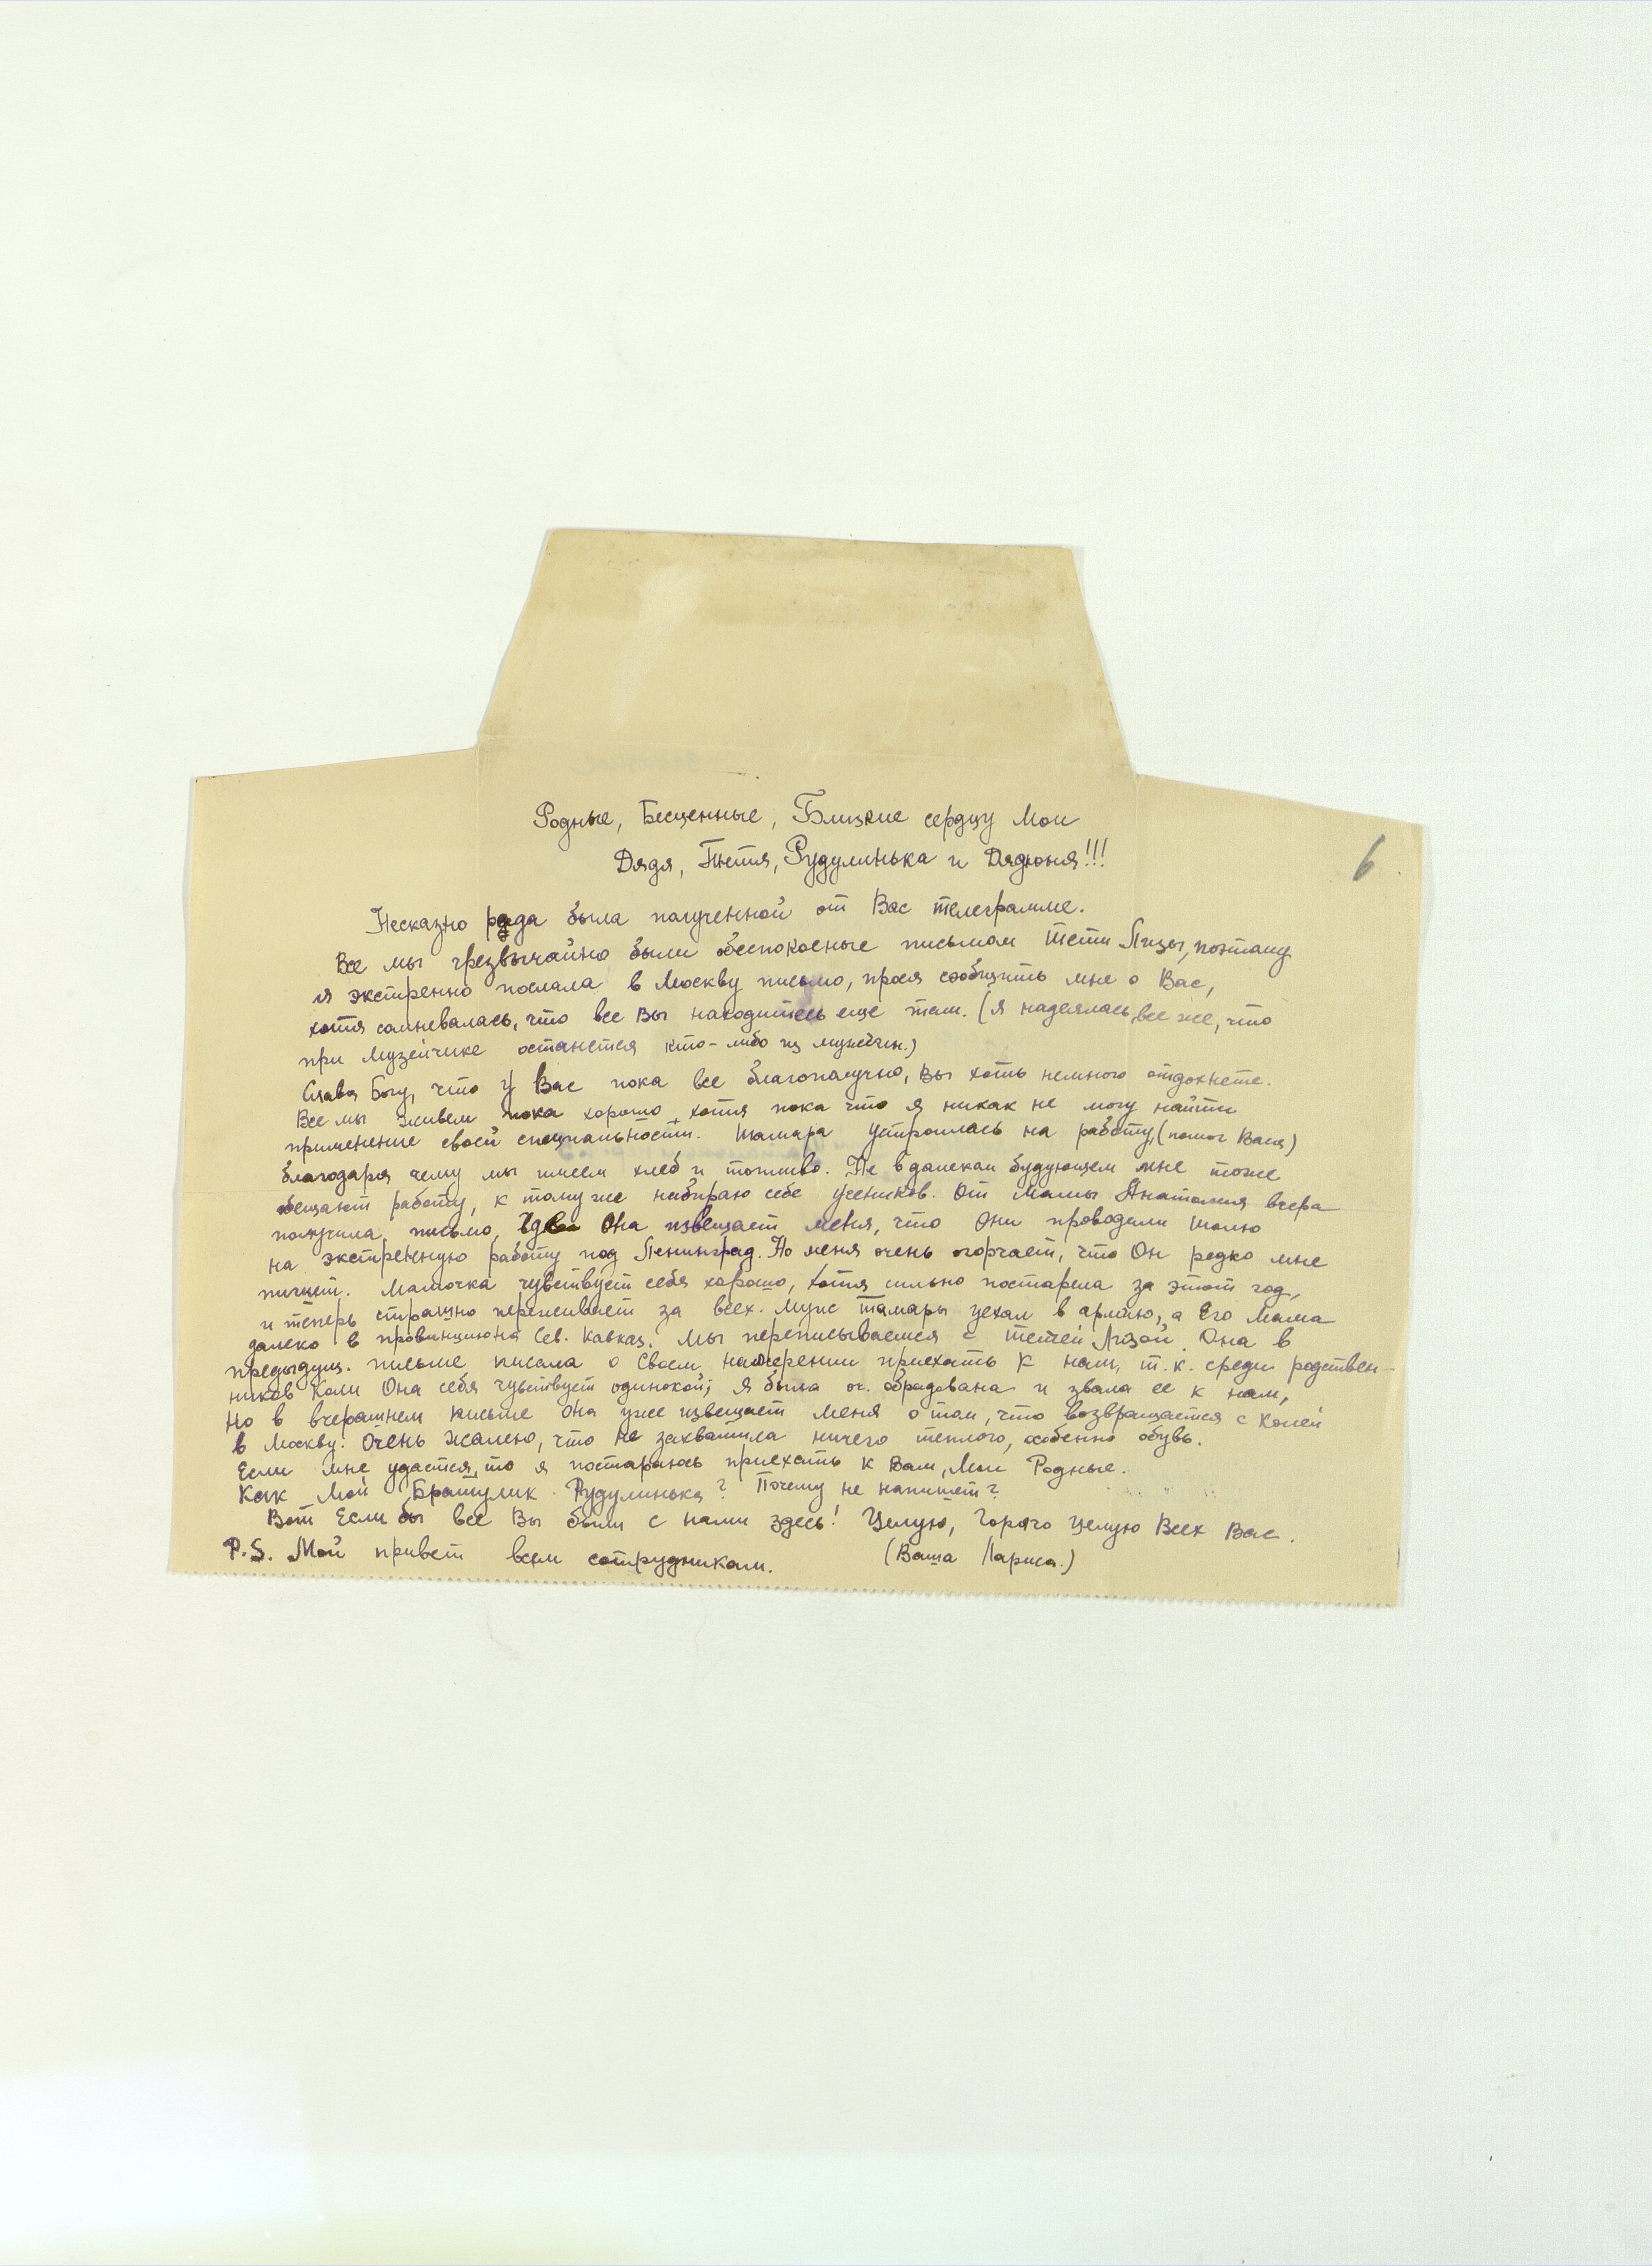 6
Родные, Бесценные, Близкие сердцу Мои
Дядя, Тётя, Рудулинька и Дядюня!!!
Несказно рада была полученной от Вас телеграмме.
Все мы чрезвычайно были обеспокоенные письмом тети Лизы, поэтому
я экстренно послала в Москву письмо, прося сообщить мне о Вас,
хотя сомневалась, что все Вы находитесь еще там. (Я надеялась, все же, что
при Музейчике останется кто-либо из мужчин.)
Слава Богу, что у Вас пока все благополучно, Вы хоть немного отдохнете.
Все мы живем пока хорошо, хотя пока что я никак не могу найти
применение своей специальности. Тамара устроилась на работу, (помог Вася)
благодаря чему мы имеем хлеб и топливо. Не в далеком будующем мне тоже
обещают работу, к тому же набираю себе учеников. От Мамы Анатолия вчера
получила письмо, где Она извещает меня, что Они проводили Толю
на экстренную работу под Ленинград. Но меня очень огорчает, что Он редко мне
пишет. Мамочка чувствует себя хорошо, хотя сильно постарела за этот год,
и теперь страшно переживает за всех. Муж Тамары уехал в армию, а Его Мама
далеко в провинцию на Сев. Кавказ. Мы переписываемся с тетей Лизой. Она в
предыдущ. письме писала о Своем намерении приехать к нам, т.к. среди родствен-
ников Коли Она себя чувствует одинокой; я была оч. обрадована и звала ее к нам,
но в вчерашнем письме Она уже извещает меня о том, что возвращается с Колей
в Москву. Очень жалею, что не захватила ничего теплого, особенно обувь.
Если мне удастся, то я постараюсь приехать к Вам, Мои Родные.
Как Мой Братулик Рудулинька? Почему не напишет?
Вот Если бы все Вы были с нами здесь! Целую, Горячо целую Всех Вас.
P.S. Мой привет всем сотрудникам. (Ваша Лариса.)